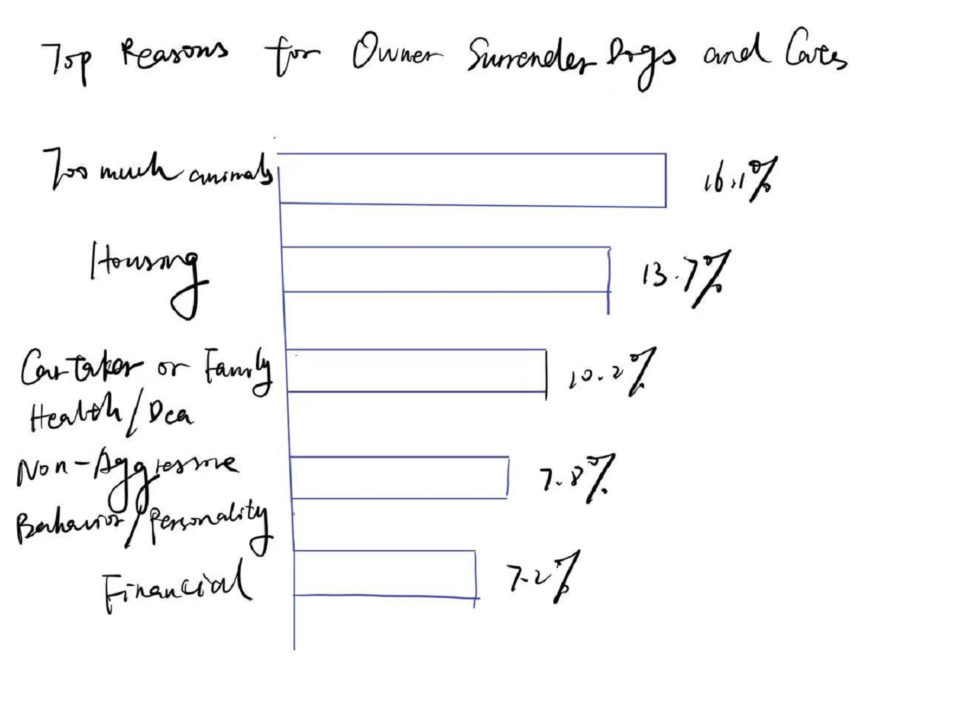 Top Reasons for Owner Surrender Dogs and Cates
Too much animals
16.1%
Housing
13.7%
Cartaker or Family
Health/Dea
10.2%
Non-Aggressive
Behavior/Personality
7.8%
Financial
7.2%